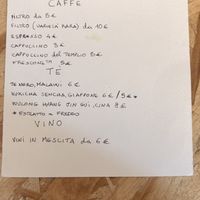 CAFFÈ
FILTRO da 5€
FILTRO (VARIETÀ RARA) da 10€
ESPRESSO 4€
CAPPUCCINO 5€
CAPPUCCINO DEL TEMPIO 8€
FRESCONE™ 5€
TÈ
TÈ NERO, MALAWI 6€
KUKICHA SENCHA, GIAPPONE 6€ / 5€*
OOLONG HUANG JIN GUI, CINA 8€
* ESTRATTO A FREDDO
VINO
VINI IN MESCITA da 6€